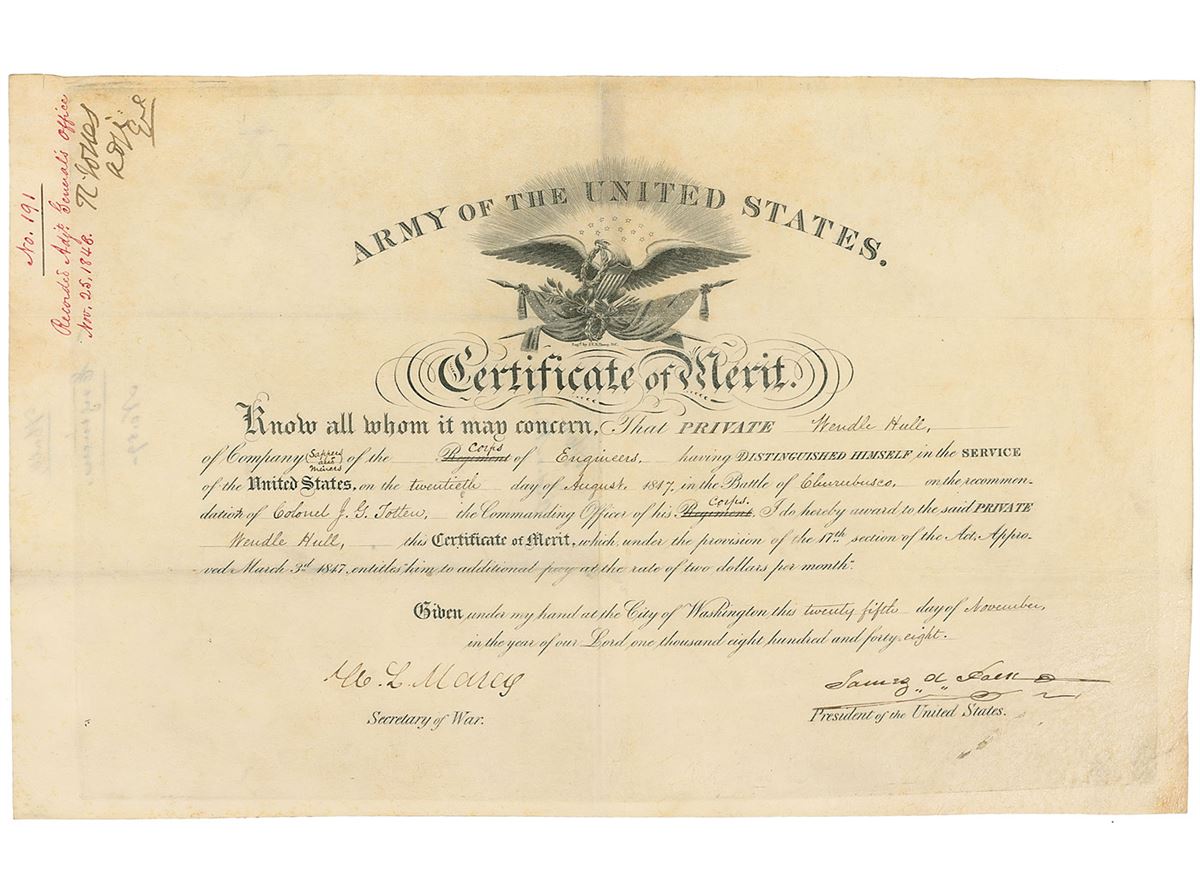 No. 191
Recorded Adjt. General's Office
Nov. 25, 1848.
ARMY OF THE UNITED STATES.
Certificate of Merit.
Know all whom it may concern, That PRIVATE Wendle Hull,
of Company Sappers and Miners of the Regiment Corps of Engineers, having DISTINGUISHED HIMSELF in the SERVICE
of the United States, on the twentieth day of August, 1847, in the Battle of Churubusco, on the recommen-
dation of Colonel J. G. Totten, the Commanding Officer of his Regiment Corps. I do hereby award to the said PRIVATE
Wendle Hull, this Certificate of Merit, which, under the provision of the 17th. section of the Act, Appro-
ved March 3rd 1847, entitles him to additional pay at the rate of two dollars per month.
Given under my hand at the City of Washington, this twenty fifth day of November,
in the year of our Lord, one thousand eight hundred and forty eight.
W. L. Marcy
Secretary of War.
James K. Polk
President of the United States.